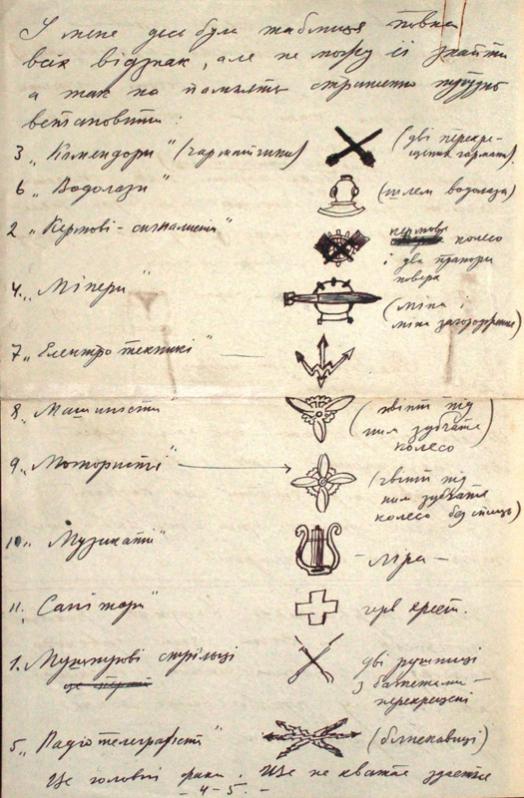 У мене десь була таблиця повна
всіх відзнак, але не можу її знайти
а так по памʼять страшенно трудно
встановити:
3 „Комендори" (гарматники) (дві перекре-
щених гармат).
6 „Водолази" (шлем водолаза)
2 „Кермові - сигналісти" колесо
і два прапори
поверх
4. „Мінери" (міна і
міна загородження)
7 „Електротехнікі
8 „Машиністи (гвінт під
ним зубчате
колесо)
9 „Мотористи" (гвінт під
ним зубчате
колесо без спиць)
10 „Музиканти" - ліра -
11. „Санітари" черв крест.
1. Муштрові стрільці дві рушниці
з багнетами -
перекрещені
5 „Радіотелеграфісти" (блискавиці)
Це головні фахи. Ще не хватає здається
- 4-5. -